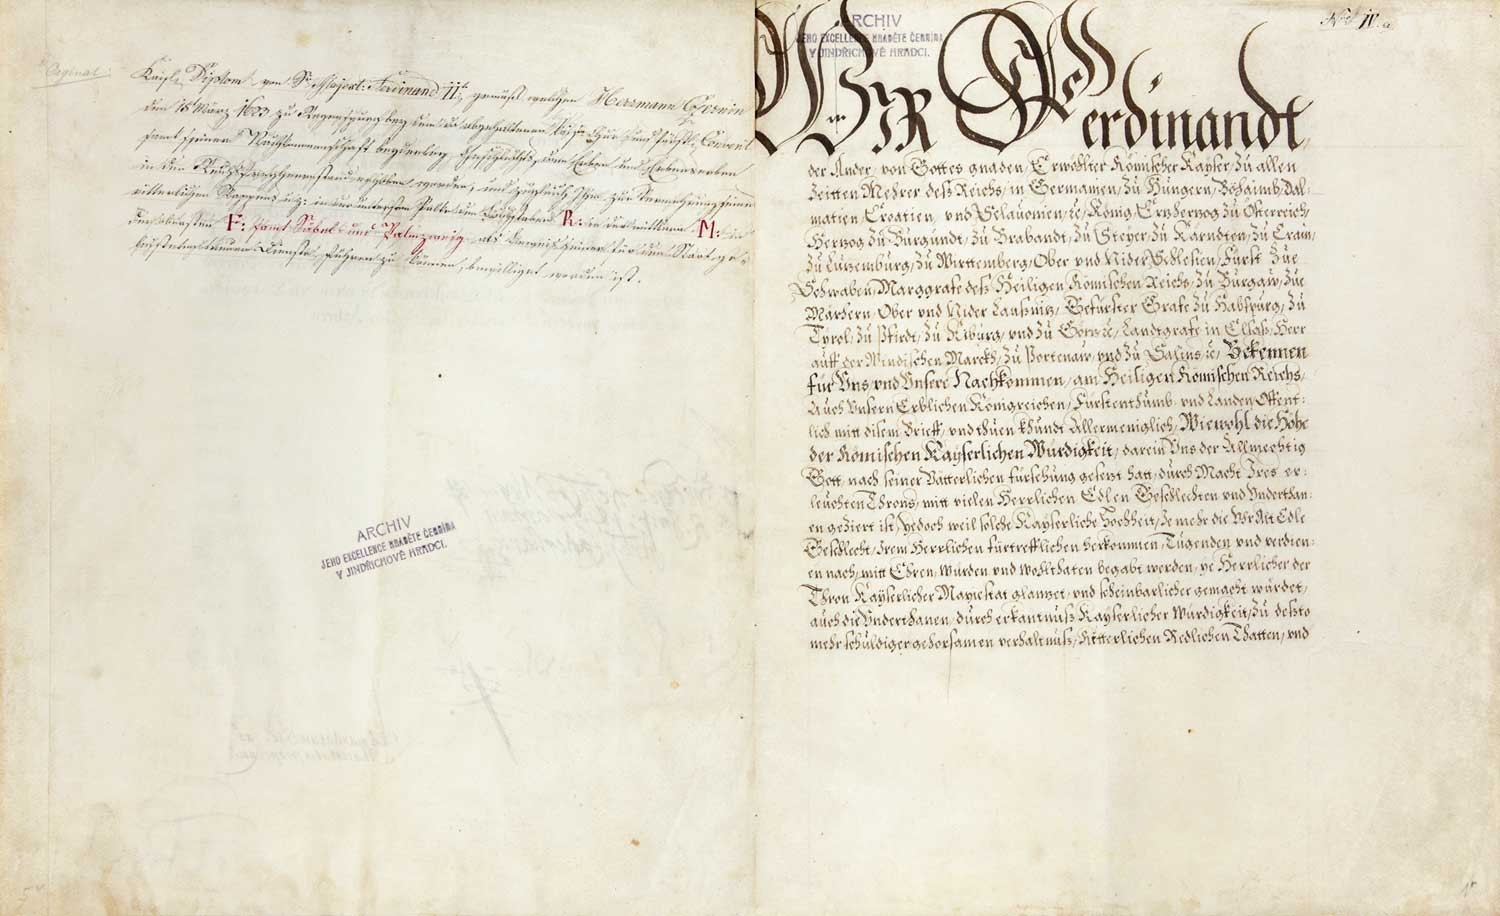 Original:
Kaisl. Diplom von Sr. Majest: Ferdinand II., gemäß welchen Herrmann Czernin
den 18 März 1623 zu Regenspurg bey dem da abgehaltenen Convent
samt seinen beyderley Geschlechts, dem Erben und Erbenserben
in den Reichsgrafenstand erhoben worden, und zugleich Ihm zur Vermehrung seines
ritterlichen Wappens in der untersten Buchstaben R: in der mittlern M: in
der obersten F: samt Säbel und Palmzweig als Zeugniß seiner für den Staat ge-
Dienste führen zu können, bewilliget worden ist.
ARCHIV
JEHO EXCELLENCE HRABĚTE ČERNÍNA
V JINDŘICHOVĚ HRADCI.
ARCHIV
JEHO EXCELLENCE HRABĚTE ČERNÍNA
V JINDŘICHOVĚ HRADCI.
Nro IV. a
WIR Ferdinandt,
der Ander, von Gottes gnaden, Erwölter Römischer Kayser, zu allen
Zeitten Mehrer deß Reichs, in Germanien, zu Hungern, Böhaimb, Dal-
matien, Croatien, und Sclauonien, &c, König, Ertzherzog zu Österreich,
Hertzog zu Burgundt, zu Brabandt, zu Steyer, zu Kärndten, zu Crain,
zu Lützemburg, zu Wirttemberg, Ober und Nider Schlesien, Fürst zue
Schwaben, Marggrafe deß Heiligen Römischen Reichs, zu Burgaw, zue
Märhern, Ober und Nider Laußnitz, Gefürster Grafe zu Habspurg, zu
Tyrol, zu Pfirdt, zu Kiburg, und zu Görtz &c, Landtgrafe in Elsaß, Herr
auff der Windischen Marckh, zu Portenaw, und zu Salins &c, Bekennen
für Uns, und Unsere Nachkommen, am Heiligen Römischen Reichs,
Auch Unsern Erblichen Königreichen, Fürstenthumb und Landen, Offent-
lich mitt disem Brieff, und thuen khundt Allermeniglich, Wiewohl die Höhe
der Römischen Kayserlichen Würdigkeit, darein Uns der Allmechtig
Gott, nach seiner Vätterlichen fürsehung gesetzt hatt, durch Macht Ires er-
leuchten Throns, mitt vielen Herrlichen Edlen Geschlechten und Underthan-
en geziert ist, Yedoch weil solche Kayserliche Hochheit, Je mehr die Vor Alt Edle
Geschlecht, Irem Herrlichen fürtrefflichen herkommen, Tugenden und verdien-
en nach, mitt Ehren, würden und wohlthaten begabt werden, ye Herrlicher der
Thron Kayserlicher Mayiestat glantzet, und scheinbarlicher gemacht würdet,
auch die Underthanen, durch erkantnuß Kayserlicher Würdigkeit, zu deßto
mehr schuldiger gehorsamen verhaltnuß, Ritterlichen Redlichen Thatten, und
1r